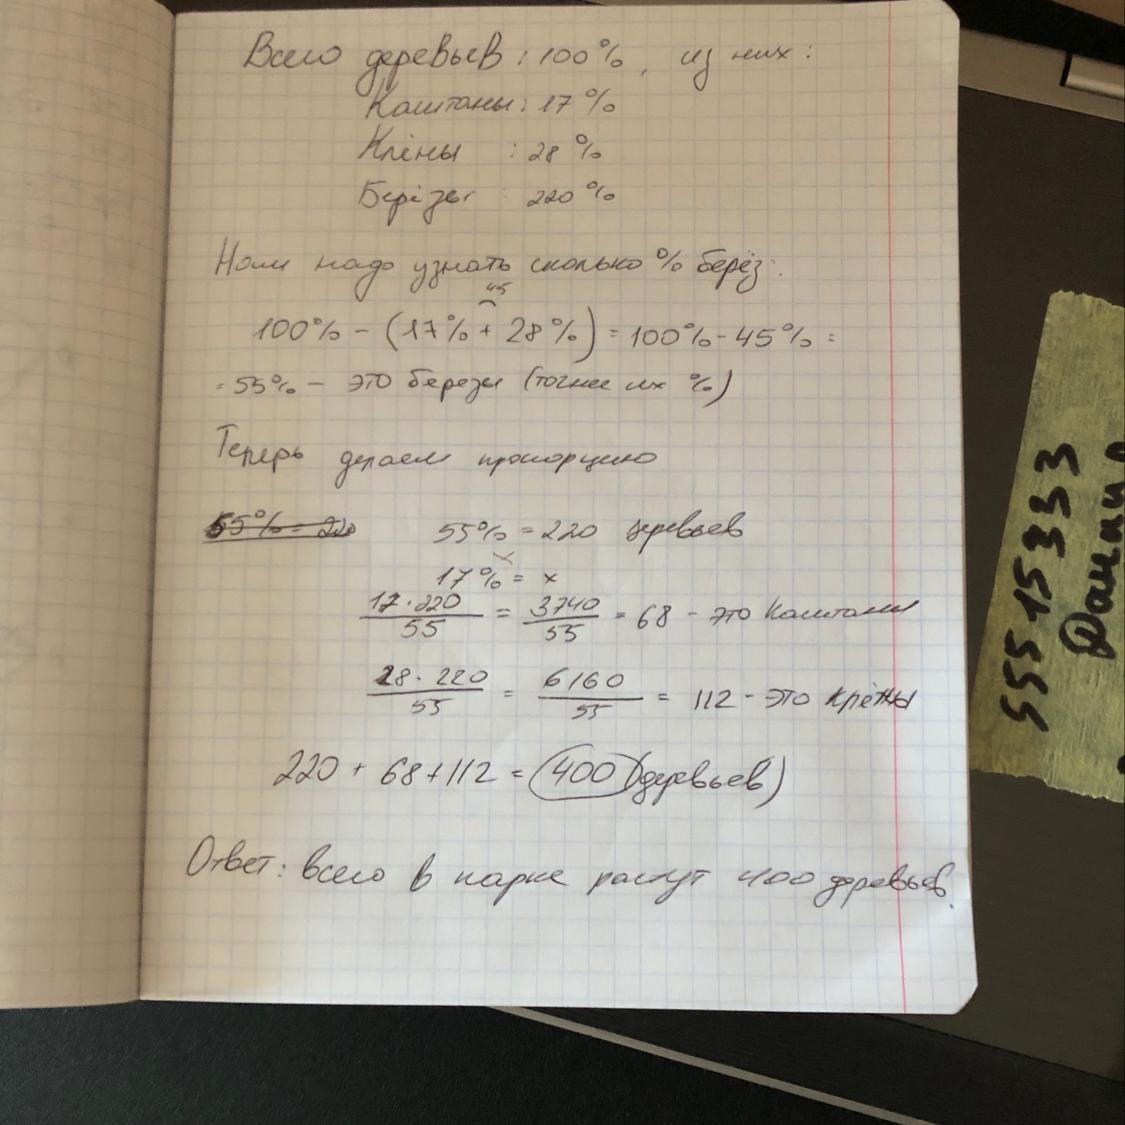 Всего деревьев: 100%, из них:
Каштаны: 17%
Клёны : 28%
Берёзы : 220%
Нам надо узнать сколько % берёз:
45
100% - (17% + 28%) = 100% - 45% =
= 55% - это березы (точнее их %)
Теперь делаем пропорцию
55% = 220
55% = 220 деревьев
17% = x
17·220/55 = 3740/55 = 68 - это Каштаны
28·220/55 = 6160/55 = 112 - это Клёны
220 + 68 + 112 = 400 (деревьев)
Ответ: всего в парке растут 400 деревьев.
555 15333